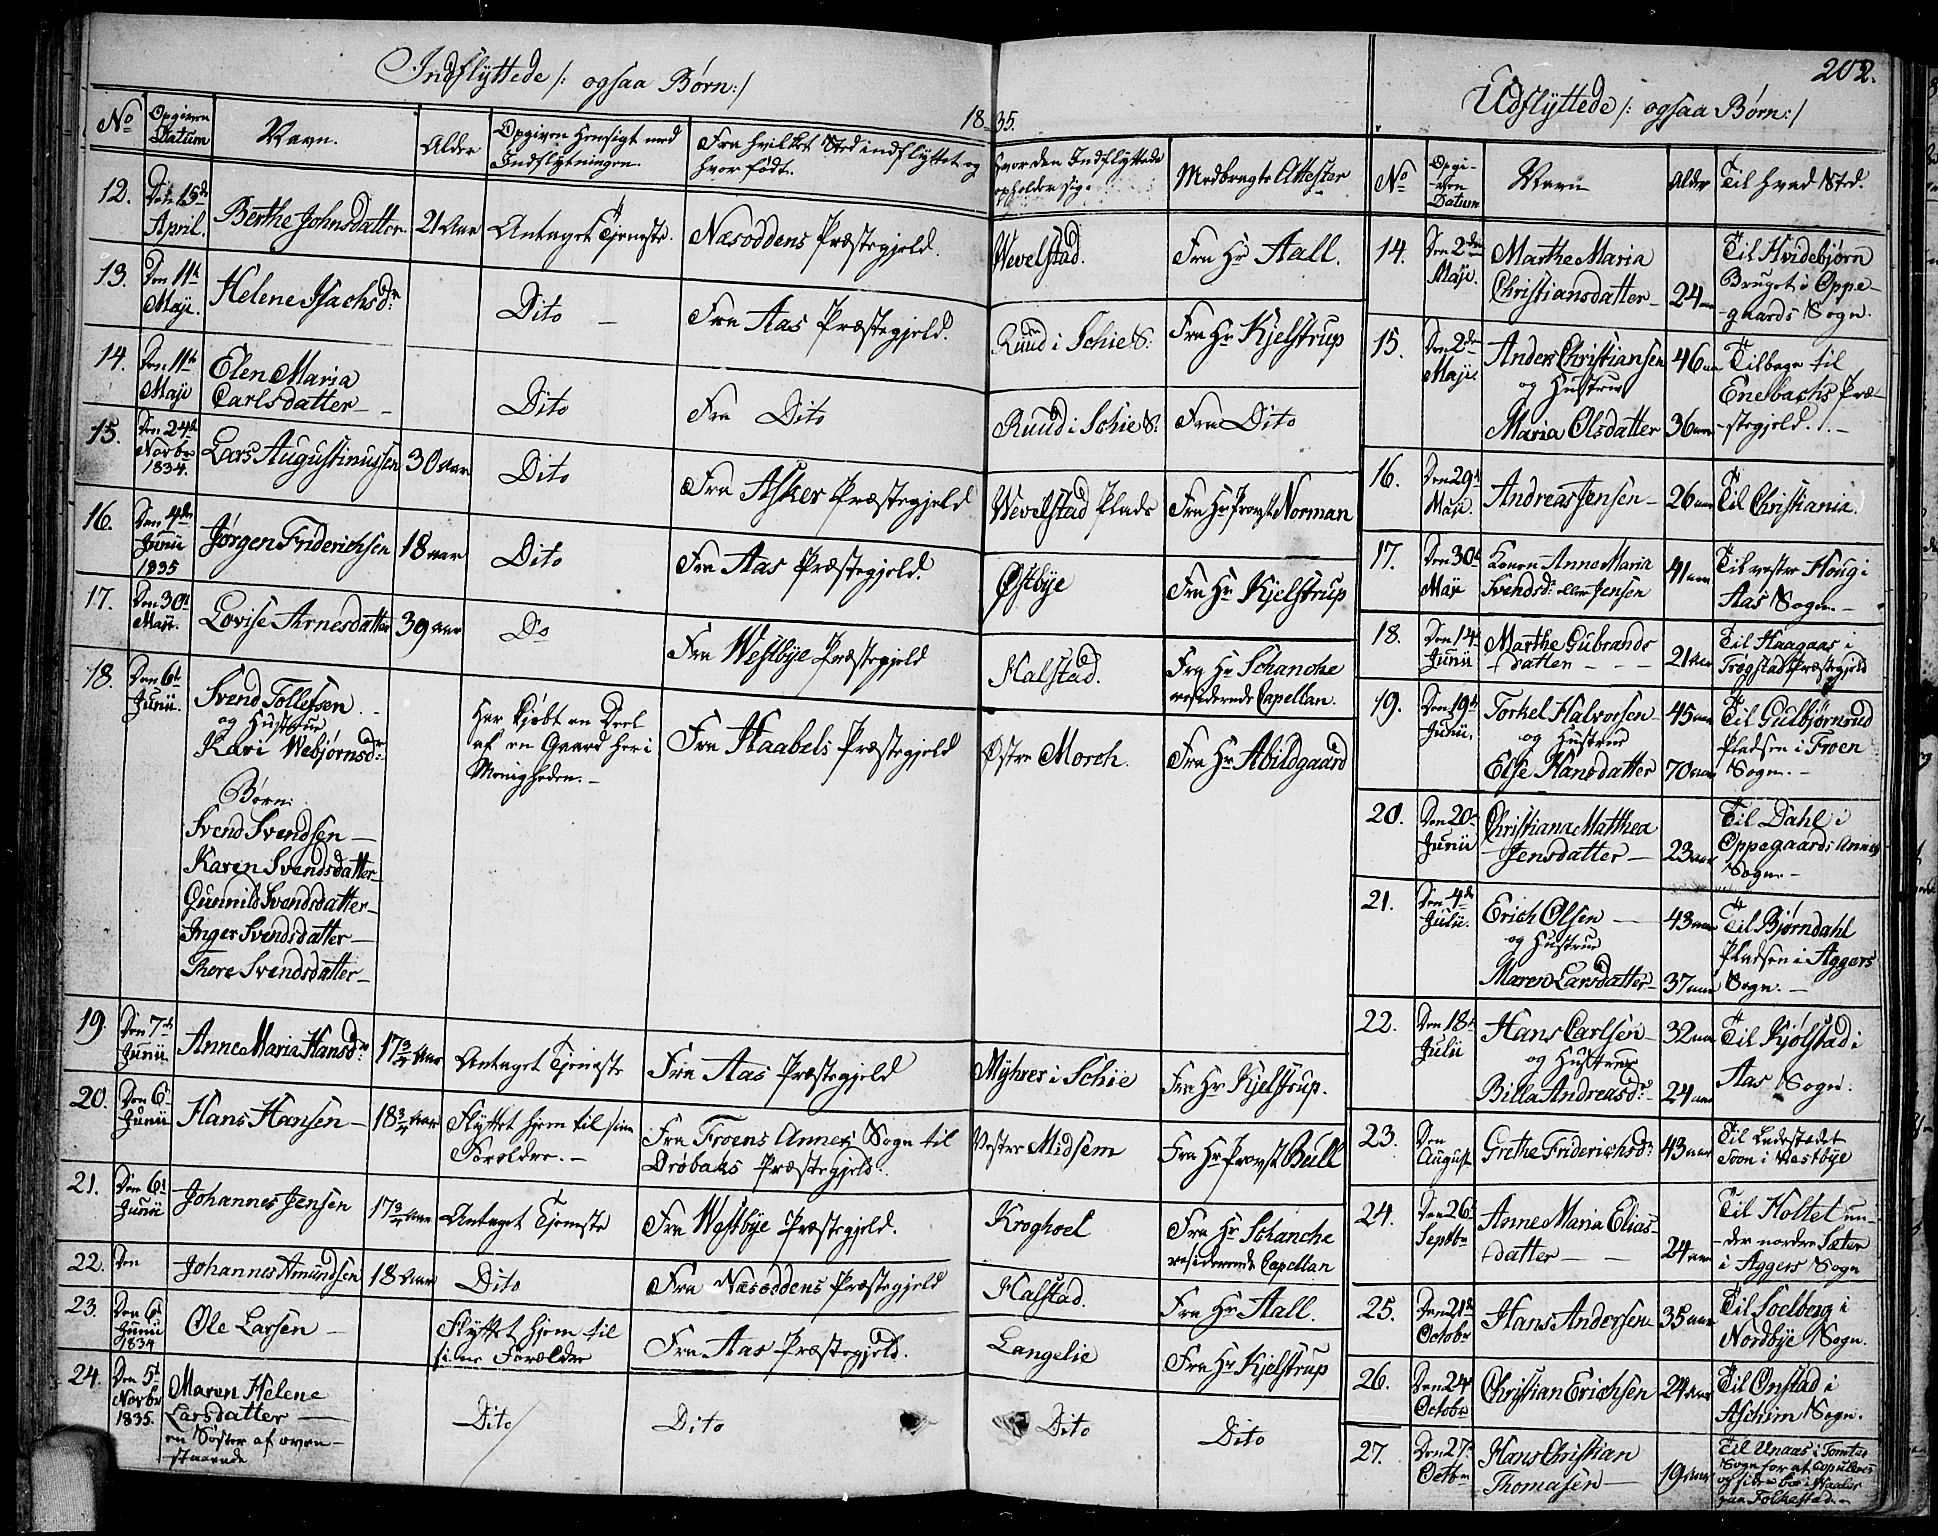 Indflyttede /: ogsaa Børn:/
1835.
No
Opgiven Datum
Navn.
Alder
Opgiven Hensigt med Indflytningen.
Fra hvilket Sted indflyttet og hvor født.
Hvor den Indflyttede opholder sig.
Medbragte Attester
12. Den 15de April. Berthe Johnsdatter 21 Aar Antaget Tjeneste. Næsoddens Præstegjeld. Wevelstad. Fra Hr Aall.
13. Den 11te Maji. Helene Isachsdr Dito Fra Aas Præstegjeld. Ruud i Schie S: Fra Hr Kjelstrup
14. Den 11te Maji Elen Maria Carlsdatter Dito Fra Dito Ruud i Schie S: Fra Dito
15. Den 24de Novbr 1834. Lars Augustinussen 30 Aar Dito Fra Asker Præstegjeld Wevelstad Plads Fra Hr Provst Norman
16. Den 4de Junii 1835 Jørgen Friderichsen 18 aar Dito Fra Aas Præstegjeld. Østbye Fra Hr Kjelstrup
17. Den 30te Maji. Lovise Arnesdatter 39 aar Do Fra Westbye Præstegjeld Halstad. Fra Hr Schanche residerende Capellan.
18. Den 6te Junii. Svend Tollefsen og Hustrue Kari Webjørnsdr
Børn:
Svend Svendsen
Karen Svendsdatter
Gunnild Svendsdatter
Inger Svendsdatter
Thore Svendsdatter
Har kjøbt en Deel af en Gaard her i Menigheden. Fra Haabels Præstegjeld Østre Morch. Fra Hr Abildgaard
19. Den 7de Junii. Anne Maria Hansdr 17 3/4 Aar Antaget Tjeneste Fra Aas Præstegjeld Myhrer i Schie Fra Hr Kjelstrup.
20. Den 6te Junii Hans Hansen 18 3/4 Aar Flyttet hjem til sine Forældre. Fra Froens Annex Sogn til Drøbaks Præstegjeld. Vestre Midsem Fra Hr Provst Bull
21. Den 6te Junii Johannes Jensen 17 3/4 Aar Antaget Tjeneste Fra Westbye Præstegjeld. Kroghoel Fra Hr Schanche residerende Capellan
22. Den Johannes Amundsen 18 Aar Dito Fra Næsoddens Præstegjeld Halstad. Fra Hr Aall.
23. Den 6te Junii 1834 Ole Larsen Flyttet hjem til sine Forældre Fra Aas Præstegjeld. Langelie Fra Hr Kjelstrup
24. Den 5te Novbr 1835. Maren Helene Larsdatter en Søster af ovenstaaende Dito Dito Dito Dito
202.
Udflyttede /: ogsaa Børn:/
No
Opgiven Datum
Navn
Alder
Til hvad Sted.
14. Den 2den Maji. Marthe Maria Christiansdatter 24 aar Til Hvidebjørn Bruget i Oppegaards Sogn.
15. Den 2den Maji. Anders Christiansen 46 aar og Hustrue Maria Olsdatter 36 aar Tilbage til Enebachs Præstegjeld.
16. Den 29de Maji. Andreas Jensen 26 aar Til Christiania.
17. Den 30te Maji Konen Anne Maria Svendsdr eller Jensen 41 aar Til vestre Houg i Aas Sogn
18. Den 14de Junii Marthe Gubrandsdatter 21 aar Til Haagaas i Trøgstad Præstegjeld
19. Den 19de Junii. Torkel Halvorsen 45 aar og Hustrue Else Hansdatter 70 aar Til Gulbjørnsrud Pladsen i Froen Sogn.
20. Den 20de Junii Christiana Matthea Jensdatter 23 aar Til Dahl i Oppegaards Annex Sogn
21. Den 4de Julii. Erich Olsen 43 aar og Hustrue Maren Larsdatter 37 aar Til Bjørndahl Pladsen i Aggers Sogn.
22. Den 18de Julii Hans Carlsen 32 aar og Hustrue Billa Andreasdr 24 aar Til Kjølstad i Aas Sogn.
23. Den August Grethe Friderichsdr 43 aar Til Ladestedet Soon i Westbye
24. Den 26de Septbr Anne Maria Eliasdatter 24 aar Til Holtet under nordre Sæter i Aggers Sogn
25. Den 21de Octobr Hans Andersen 35 aar Til Solberg i Nordbye Sogn.
26. Den 24de Octobr Christian Erichsen 24 Aar Til Onstad i Aschim Sogn.
27. Den 27de Octbr Hans Christian Thomasen 19 Aar Til Unaas i Tomter Sogn for at copuleres og siden boe i Haabøl paa Folkestad.